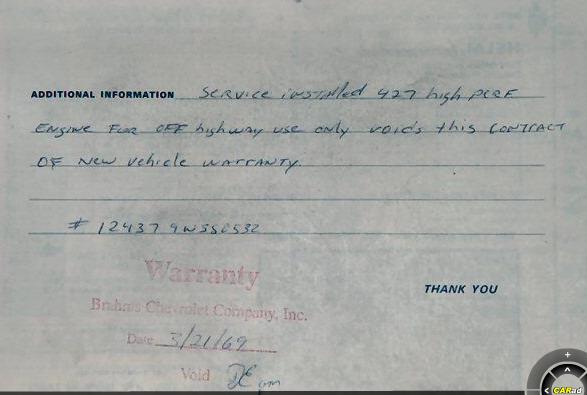 ADDITIONAL INFORMATION Service installed 427 high perf
Engine for off highway use only voids this contract
of new vehicle warranty.
# 124379N336532
Warranty
Brahms Chevrolet Company, Inc.
Date 3/21/69
THANK YOU
Void
CARad